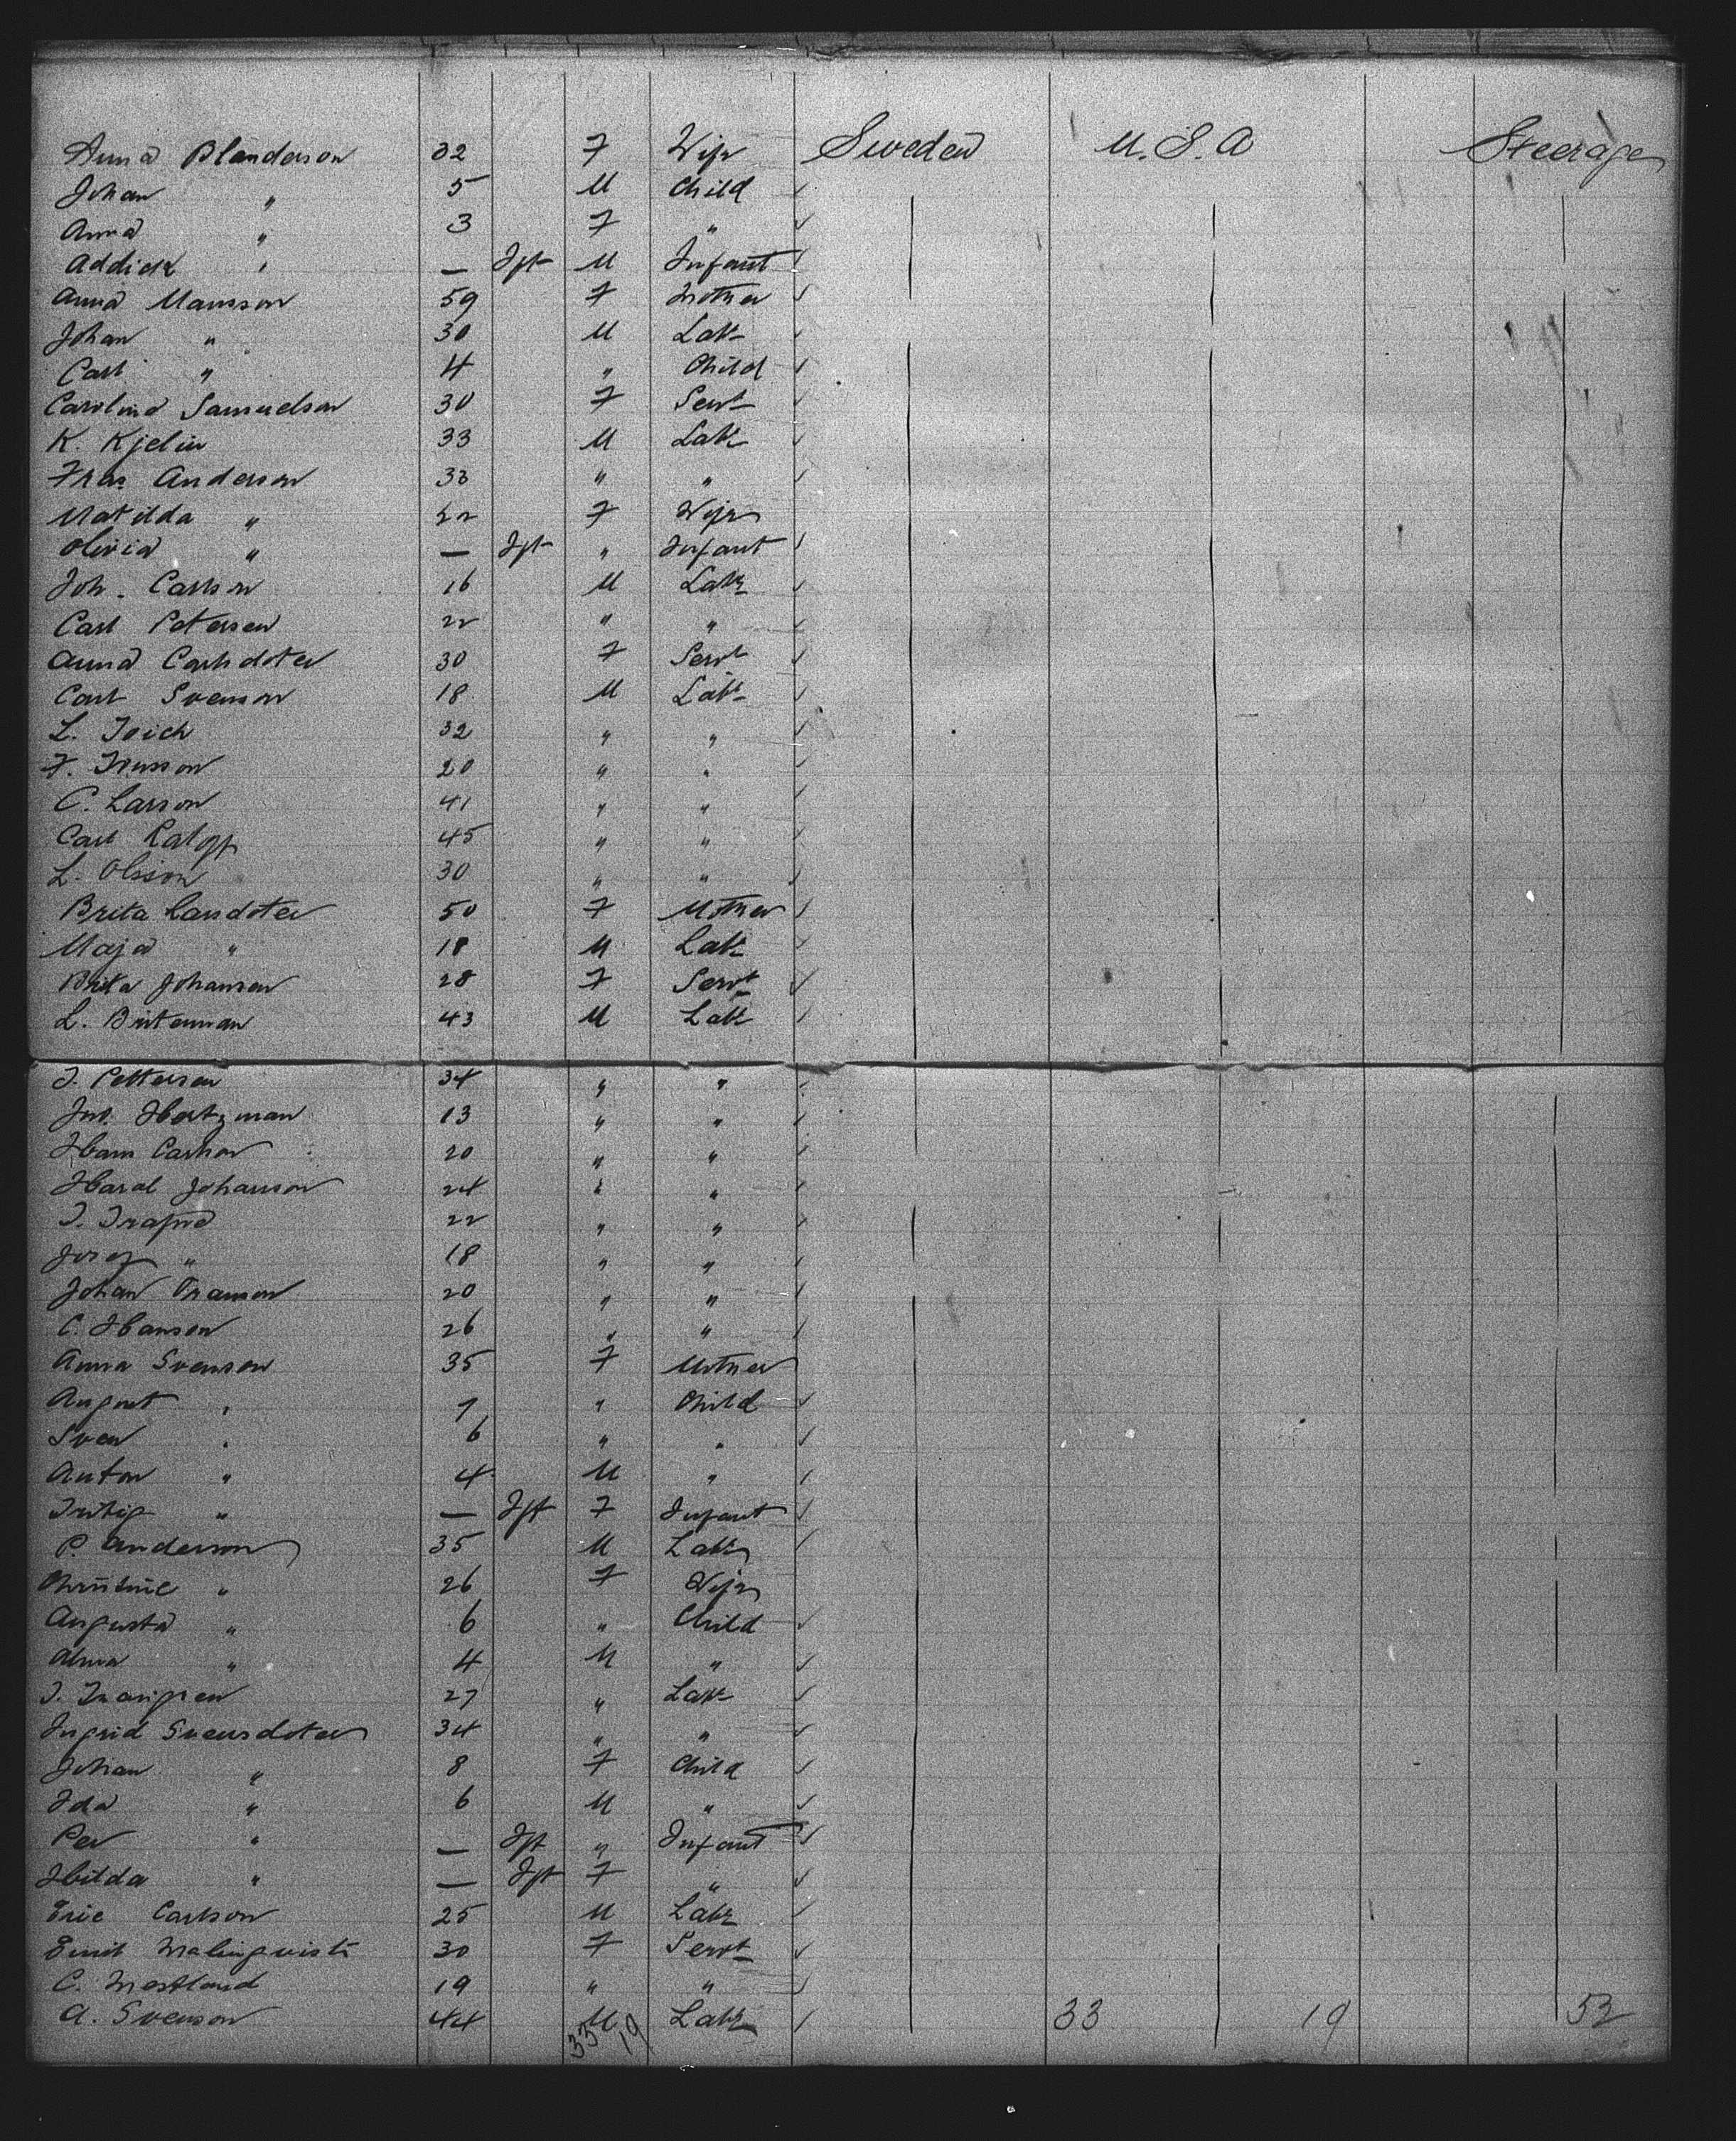 Anna Blanderson 32 F Wife Sweden U.S.A Steerage
Johan " 5 M Child
Anna " 3 F "
Addick " — Ift M Infant
Anna Manson 59 F Mother
Johan " 30 M Labr
Carl " 4 " Child
Carolina Samuelson 30 F Servt
K. Kjelin 33 M Labr
Frans Anderson 33 " "
Matilda " 22 F Wife
Olivia " — Ift " Infant
Joh. Carlson 16 M Labr
Carl Petersen 22 " "
Anna Carlsdoter 30 F Servt
Carl Svenson 18 M Labr
L. 32 " "
F. 20 " "
C. Larson 41 " "
Carl 45 " "
L. Olsson 30 " "
Brita Larsdoter 50 F Mother
Maja " 18 M Labr
Brita Johansen 28 F Servt
L. 43 M Labr
J. Pettersen 34 " "
Jno. Hertzman 13 " "
Hans Carlson 20 " "
Haral Johanson 24 " "
22 " "
Josef " 18 " "
Johan 20 " "
C. Hanson 26 " "
Anna Svenson 35 F Mother
August " 7 " Child
Sven " 6 " "
Anton " 4 M "
" — Ift F Infant
P. Anderson 35 M Labr
Christine " 26 F Wife
Augusta " 6 " Child
Alma " 4 M "
27 " Labr
Ingrid Svensdoter 34 " "
Johan " 8 F Child
Ida " 6 M "
Per " — Ift " Infant
Hilda " — Ift F "
Eric Carlson 25 M Labr
Emil Malinqvist 30 F Servt
C. Westlund 19 " "
A. Svenson 44 M Labr 33 19 52
33 19